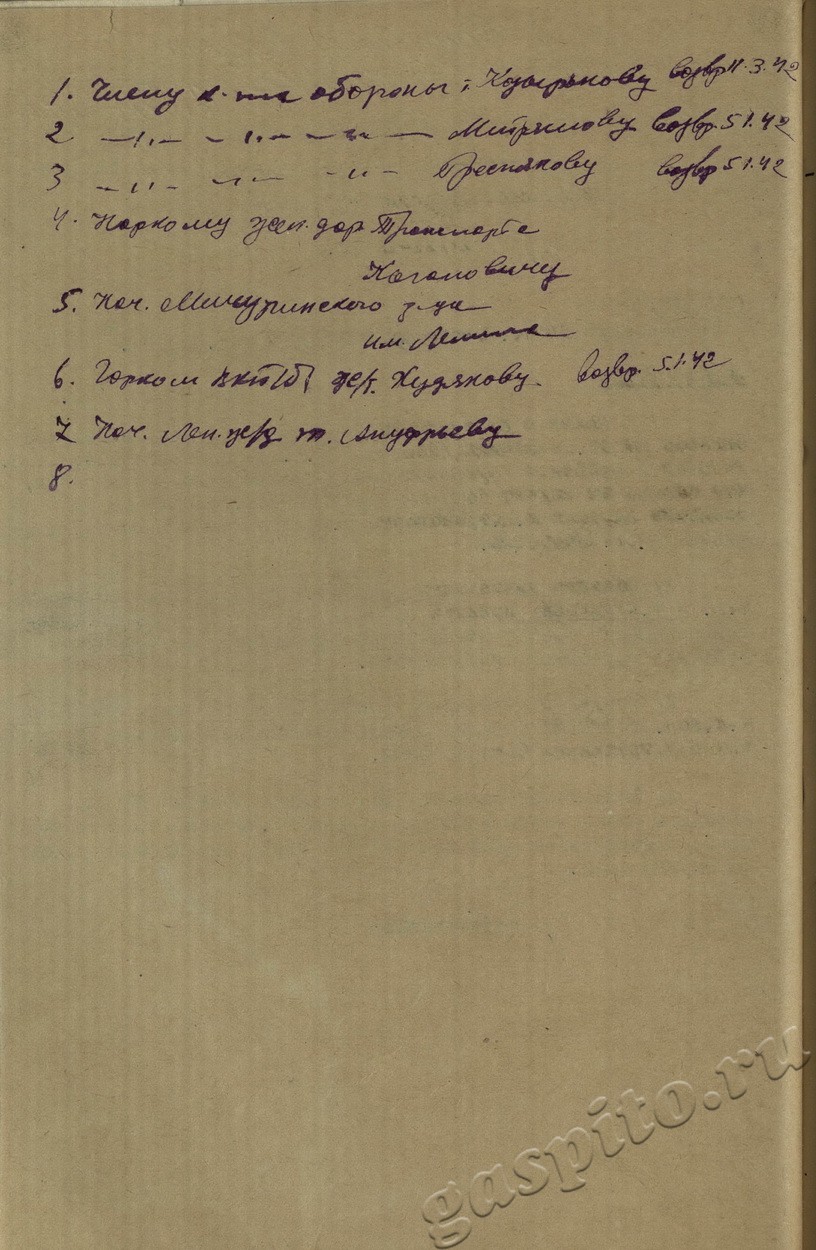 1. Члену к-та обороны: Козырькову возвр 11.3.42
2 —„— —„— —„— Митракову возвр. 5 1.42
3 —„— —„— —„— Преснякову возвр 5 1.42
4. Наркому жел. дор Транспорта
Кагановичу
5. Нач. Мичуринского
им. Ленина
6. Горком ВКП/б/ Худякову. возвр. 5.1.42
7 Нач. Лен. ж/д т. Ануфрьеву
8.
gaspito.ru